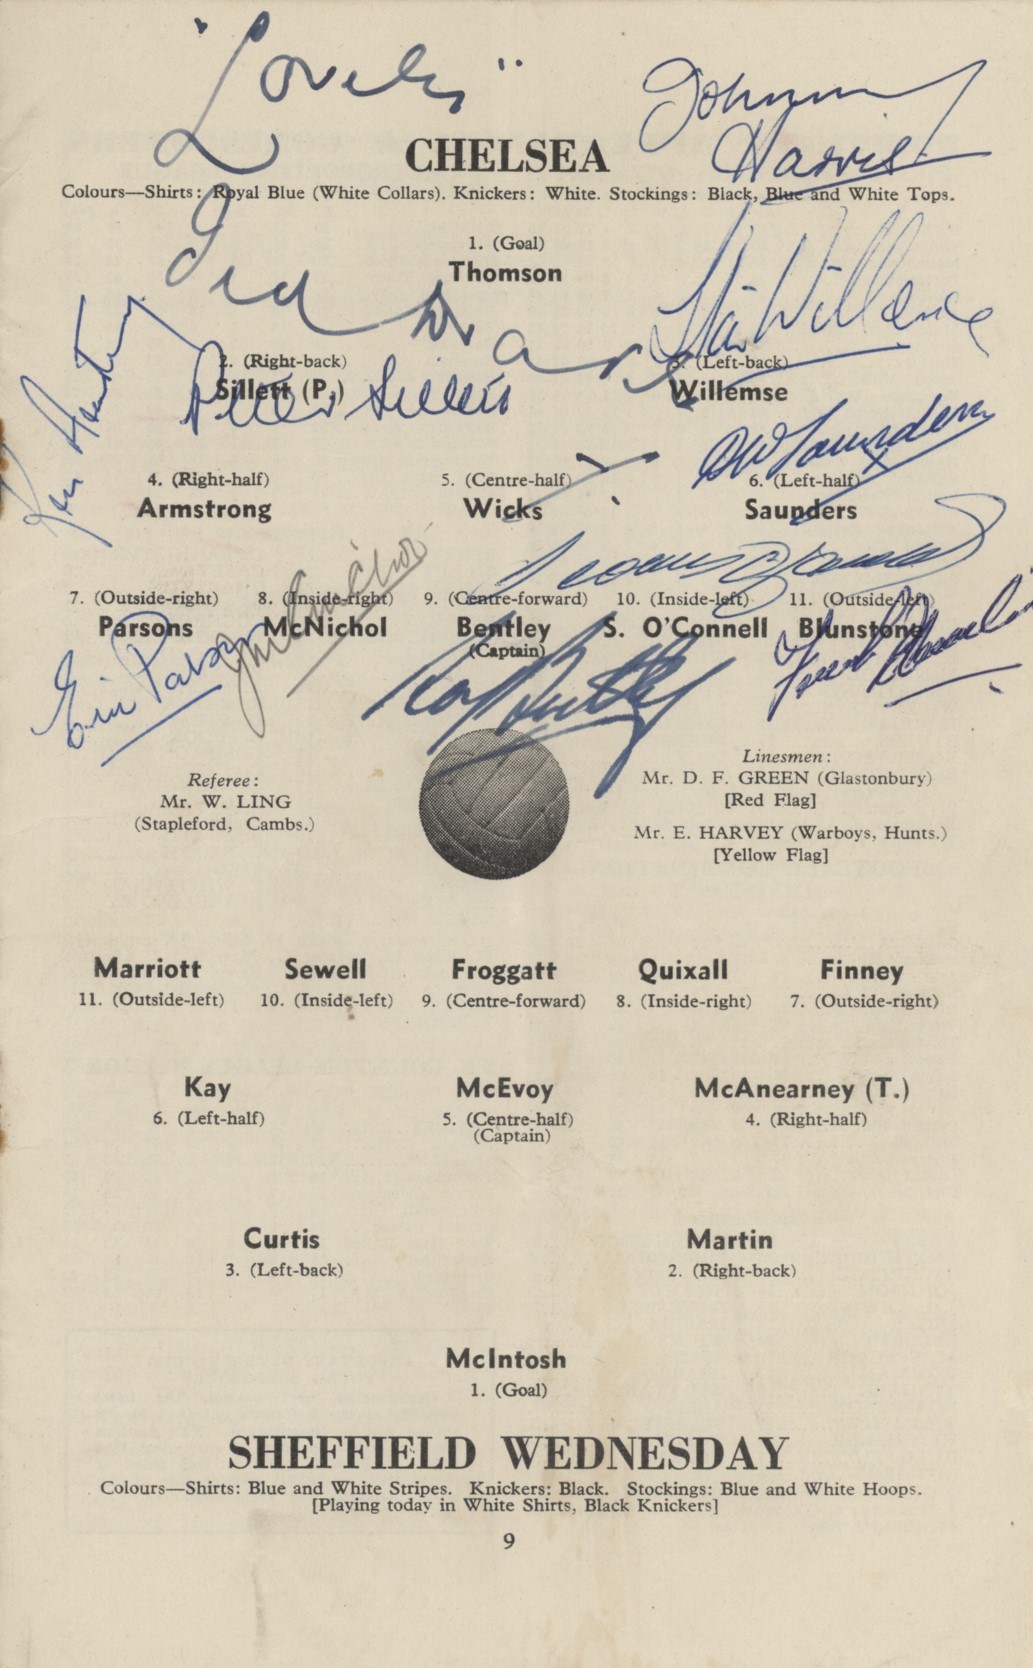 Johnny
Harris
CHELSEA
Colours—Shirts: Royal Blue (White Collars). Knickers: White. Stockings: Black, Blue and White Tops.
1. (Goal)
Thomson
Stan Willemse
2. (Right-back)
3. (Left-back)
Sillett (P.)
Willemse
Peter Sillett
Ken Armstrong
DW Saunders
4. (Right-half)
5. (Centre-half)
6. (Left-half)
Armstrong
Wicks
Saunders
7. (Outside-right)
8. (Inside-right)
9. (Centre-forward)
10. (Inside-left)
11. (Outside-left)
Parsons
McNichol
Bentley
S. O'Connell
Blunstone
(Captain)
Eric Parsons
Roy Bentley
Frank Blunstone
Referee:
Mr. W. LING
(Stapleford, Cambs.)
Linesmen:
Mr. D. F. GREEN (Glastonbury)
[Red Flag]
Mr. E. HARVEY (Warboys, Hunts.)
[Yellow Flag]
Marriott
Sewell
Froggatt
Quixall
Finney
11. (Outside-left)
10. (Inside-left)
9. (Centre-forward)
8. (Inside-right)
7. (Outside-right)
Kay
McEvoy
McAnearney (T.)
6. (Left-half)
5. (Centre-half)
4. (Right-half)
(Captain)
Curtis
Martin
3. (Left-back)
2. (Right-back)
McIntosh
1. (Goal)
SHEFFIELD WEDNESDAY
Colours—Shirts: Blue and White Stripes. Knickers: Black. Stockings: Blue and White Hoops.
[Playing today in White Shirts, Black Knickers]
9